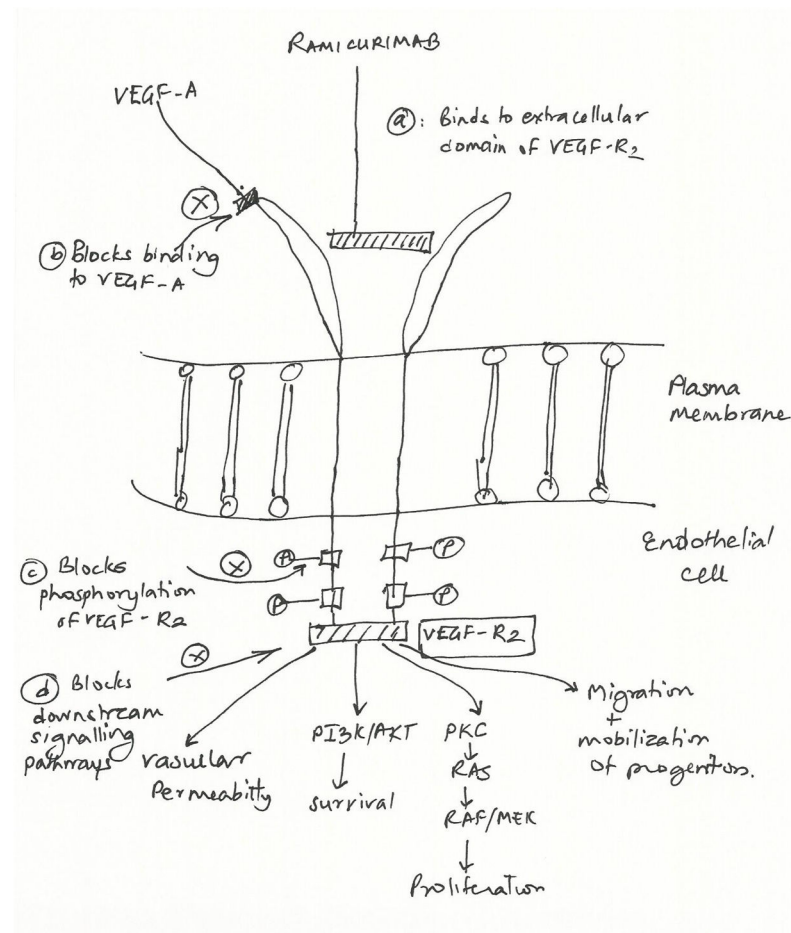 RAMICURIMAB
VEGF-A
ⓐ: Binds to extracellular
domain of VEGF-R2
X
ⓑ Blocks binding
to VEGF-A
Plasma
membrane
Endothelial
cell
ⓒ Blocks
phosphorylation
of VEGF-R2
X
P
P
P
P
VEGF-R2
X
ⓓ Blocks
downstream
signalling
pathways
vasullar
Permeabitty
PI3K/AKT
survival
PKC
RAS
RAF/MEK
Proliferation
Migration
+
mobilization
of progenitors.